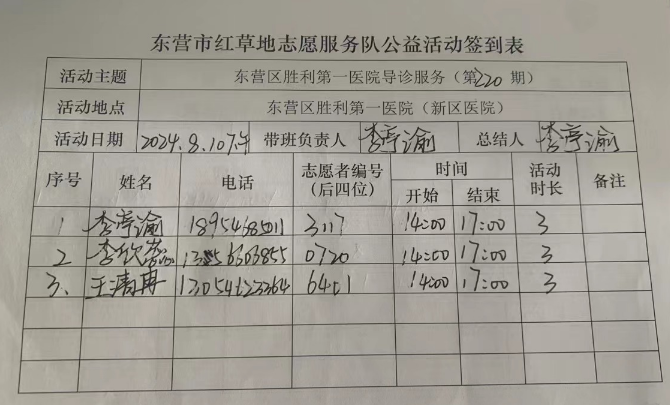 东营市红草地志愿服务队公益活动签到表
活动主题 东营区胜利第一医院导诊服务（第220期）
活动地点 东营区胜利第一医院（新区医院）
活动日期 2024.8.10下午 带班负责人 李亭渝 总结人 李亭渝
序号 姓名 电话 志愿者编号（后四位） 时间 开始 结束 活动时长 备注
1 李亭渝 18954685011 3117 14:00 17:00 3
2 李欣 0720 14:00 17:00 3
3、 王清冉 13054623364 6401 14:00 17:00 3